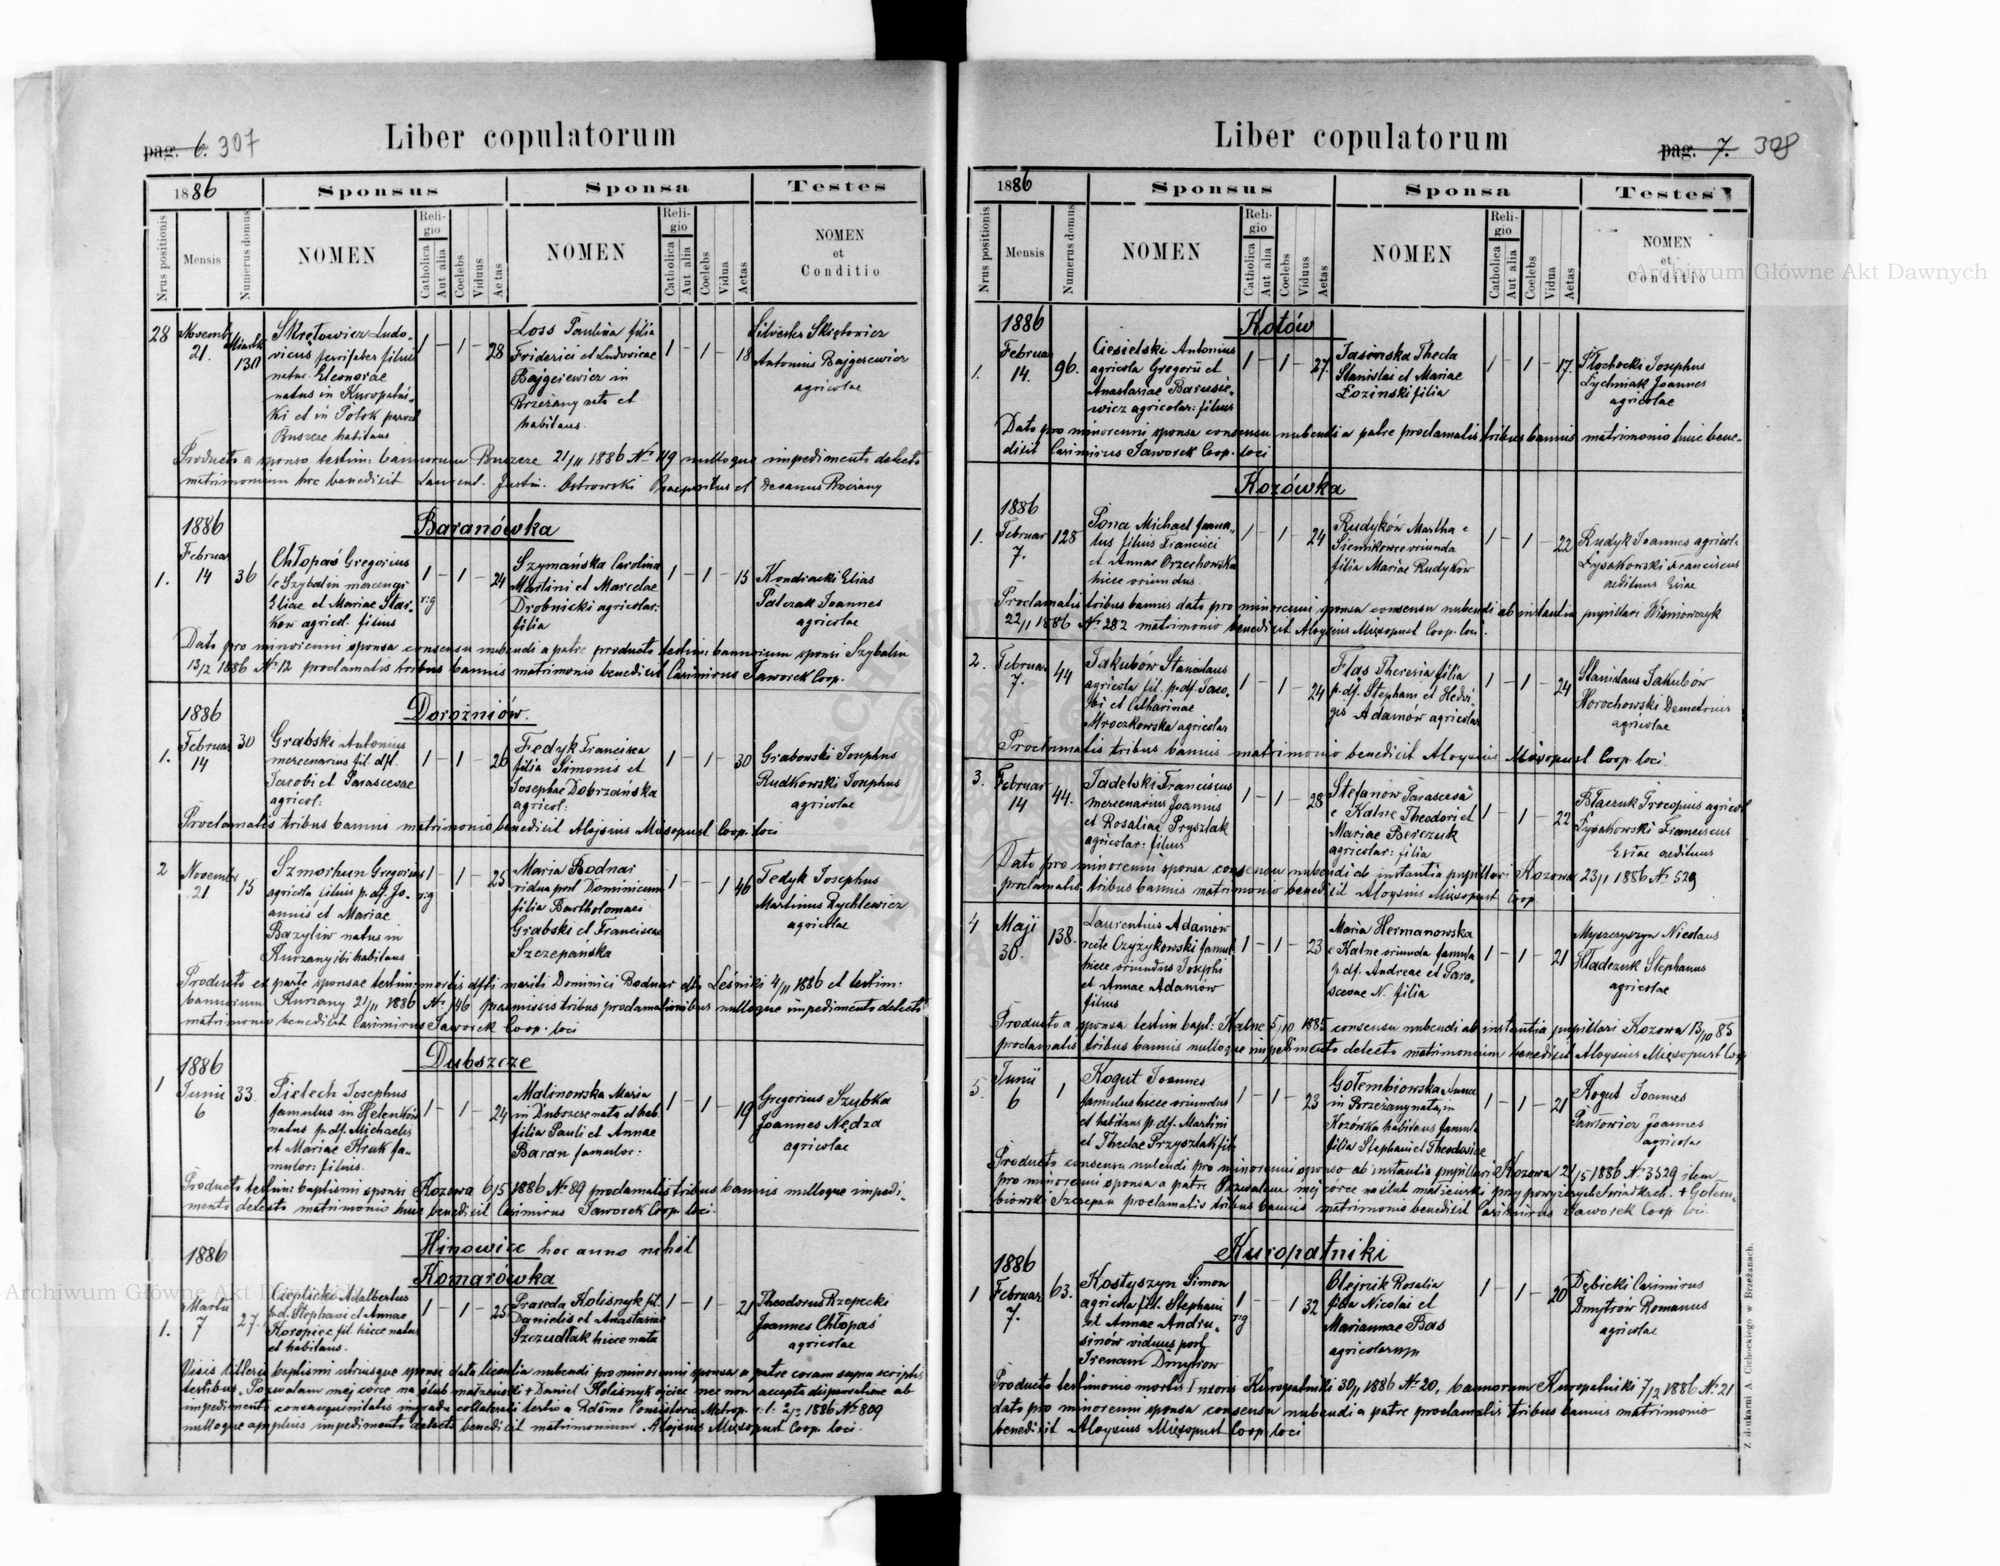 pag. 6. 307
Liber copulatorum
1886 Sponsus Sponsa Testes
Nrus positionis Mensis Numerus domus NOMEN Religio Catholica Aut alia Coelebs Viduus Aetas NOMEN Religio Catholica Aut alia Coelebs Vidua Aetas NOMEN et Conditio
28 Novemb. 21. 130
Skrętowicz Ludo-
vicus ferrifaber filius
natur. Eleonorae
natus in Kuropatni-
ki et in Potok paroch
Buszcze habitans
1 – 1 – 28
Loss Paulina filia
Friderici et Ludovicae
Bajgerewicz in
Brzeżany nata et
habitans.
1 – 1 – 18
Silvester Skrętowicz
Antonius Bajgerewicz
agricolae
Producto a sponso testim: bannorum Buszcze 21/11 1886 Nr 119 nulloque impedimento detecto
matrimonium hoc benedixit Laurent. Justin. Ostrowski Praepositus et Decanus
1886 Baranówka
1. Februar 14 36
Chłopaś Gregorius
e Szybalin mercenar.
Eliae et Mariae Star-
kow agricol. filius
1 – 1 – 24
r:g
Szymańska Carolina
Martini et Marcelae
Drobnicki agricolar:
filia
1 – 1 – 15
Kondracki Elias
Palczak Joannes
agricolae
Dato pro minorenni sponsa consensu nubendi a patre producto testim: bannorum sponsi Szybalin
13/2 1886 Nr 12 proclamatis tribus bannis matrimonio benedixit Casimirus Jaworek Coop.
1886 Dorożniów.
1. Februar 14 30
Grabski Antonius
mercenarius fil. dft.
Jacobi et Parascevae
agricol:
1 – 1 – 26
Fedyk Francisca
filia Simonis et
Josephae Dobrzańska
agricol:
1 – 1 – 30
Grabowski Josephus
Rudkowski Josephus
agricolae
Proclamatis tribus bannis matrimonio benedixit Alojsius Mięsopust Coop. loci
2 Novembr 21 15
Szmorhun Gregorius
agricola filius p. df. Jo-
annis et Mariae
Bazyliw natus in
Kurzany ibi habitans
1 – 1 – 25
r:g
Maria Bodnar
vidua post Dominicum
filia Bartholomaei
Grabski et Franciscae
Szczepańska
1 – 1 46
Fedyk Josephus
Martinus Rychlewicz
agricolae
Producto ex parte sponsae testim: mortis dfti mariti Dominici Bodnar dto Leśniki 4/11 1886 et testim:
bannorum Kurzany 21/11 1886 Nr 146 praemissis tribus proclamationibus nulloque impedimento detecto
matrimonio benedixit Casimirus Jaworek Coop. loci
1886 Dubszcze
1 Junii 6 33.
Pielech Josephus
famulus in Helenków
natus p. df. Michaelis
et Mariae Kruk fa-
mulor: filius.
1 – 1 – 24
Malinowska Maria
in Dubszcze nata et hab.
filia Pauli et Annae
Baran famulor:
1 – 1 – 19
Gregorius Szybka
Joannes Nędza
agricolae
Producto testim: baptismi sponsi Kozowa 6/5 1886 Nr 89 proclamatis tribus bannis nulloque impedi-
mento detecto matrimonio huic benedixit Casimirus Jaworek Coop. loci.
1886 Hinowice hoc anno nihil
Komarówka
1. Martii 7 27.
Cieplicki Adalbertus
p. d. Stephani et Annae
Koropiec fil. hicce natus
et habitans.
1 – 1 – 25
Praxeda Kolisnyk fil.
Danielis et Anastasiae
Szczudlak hicce nata
1 – 1 – 21
Theodorus Rzepecki
Joannes Chłopaś
agricolae
Visis litteris baptismi utriusque sponsi data licentia nubendi pro minorenni sponsa a patre coram supra scriptis
testibus. Pozwalam mej córce na ślub małżeński + Daniel Kolisnyk ojciec nec non accepta dispensatione ab
impedimento consanguinitatis in gradu collaterali tertio a Rdsmo Consistorio Metrop. r. l. 2/3 1886 Nr 809
nulloque amplius impedimento detecto benedixit matrimonium Alojsius Mięsopust Coop. loci.
pag. 7. 308
Liber copulatorum
1886 Sponsus Sponsa Testes
Nrus positionis Mensis Numerus domus NOMEN Religio Catholica Aut alia Coelebs Viduus Aetas NOMEN Religio Catholica Aut alia Coelebs Vidua Aetas NOMEN et Conditio
1886 Kotów
1. Februar 14. 96.
Ciesielski Antonius
agricola Gregorii et
Anastasiae Barusie-
wicz agricolar: filius
1 – 1 – 27.
Jasińska Theda
Stanislai et Mariae
Łoziński filia
1 – 1 – 17.
Płochocki Josephus
Łychniak Joannes
agricolae
Dato pro minorenni sponsa consensu nubendi a patre proclamatis tribus bannis matrimonio huic bene-
dixit Casimirus Jaworek Coop. loci
Kozówka
1886
1. Februar 7. 128
Pona Michael famu-
lus filius Francisci
et Annae Orzechowska
hicce oriundus.
1 – 1 – 24
Rudyków Martha e
Sienikowce oriunda
filia Mariae Rudyków
1 – 1 – 22
Rudyk Joannes agricola
Łysakowski Franciscus
aedituus Eccliae
Proclamatis tribus bannis dato pro minorenni sponsa consensu nubendi ab instantia pupillari Wiśniowczyk
22/1 1886 Nr 282 matrimonio benedixit Aloysius Mięsopust Coop. loci.
2. Februar 7. 44
Jakubów Stanislaus
agricola fil. p. df. Jaco-
bi et Catharinae
Mroczkowska agricolar
1 – 1 – 24
Flas Theresia filia
p. df. Stephani et Hedvi-
gis Adamów agricolar
1 – 1 – 24
Stanislaus Jakubów
Horochowski Demetrius
agricolae
Proclamatis tribus bannis matrimonio benedixit Aloysius Mięsopust Coop. loci.
3. Februar 14 44.
Jadelski Franciscus
mercenarius Joannis
et Rosaliae Prysztak
agricolar: filius
1 – 1 – 28
Stefanów Parasceva
e Kalne Theodori et
Mariae Berezuk
agricolar: filia
1 – 1 – 22
Błaczuk Procopius agricola
Łysakowski Franciscus
Eccliae aedituus
Dato pro minorenni sponsa consensu nubendi ab instantia pupillari Kozowa 23/1 1886 Nr 529
proclamatis tribus bannis matrimonio benedixit Aloysius Mięsopust Coop
4 Maji 30. 138.
Laurentius Adamów
recte Czyżykowski famul
hicce oriundus Josephi
et Annae Adamów
filius
1 – 1 – 23
Maria Hermanowska
e Kalne oriunda famula
p. df. Andreae et Para-
scevae N. filia
1 – 1 – 21
Myszczyszyn Nicolaus
Kładczuk Stephanus
agricolae
Producto a sponsa testim bapt: Kalne 5/10 1885 consensu nubendi ab instantia pupillari Kozowa 13/10 85
proclamatis tribus bannis nulloque impedimento detecto matrimonium benedixit Aloysius Mięsopust Coop
5. Junii 6 1
Kogut Joannes
famulus hicce oriundus
et habitans p. df. Martini
et Thedae Przysztak fil.
1 – 1 – 23
Gołembiowska Anna
in Brzeżany nata, in
Kozówka habitans famula
filia Stephani et Theodosiae
1 – 1 – 21
Kogut Joannes
Pawłowicz Joannes
agricolae
Producto consensu nubendi pro minorenni sponso ab instantia pupillari Kozowa 21/5 1886 Nr 3529 item
pro minorenni sponsa a patre Pozwalam mej córce na ślut małżeński przy powyższych świadkach. + Gołem-
biowski Szczepan proclamatis tribus bannis matrimonio benedixit Casimirus Jaworek Coop. loci
1886 Kuropatniki
1 Februar 7. 63.
Kostyszyn Simon
agricola fil. Stephani
et Annae Andru-
sinów viduus post
Irenam Dmytrow
1 – – 1 32
r:g
Olejnik Rosalia
filia Nicolai et
Mariannae Bas
agricolarum
1 – 1 – 20
Dębicki Casimirus
Dmytrów Romanus
agricolae
Producto testimonio mortis Uxoris Kuropatniki 30/1 1886 Nr 20, bannorum Kuropatniki 7/2 1886 Nr 21
dato pro minorenni sponsa consensu nubendi a patre proclamatis tribus bannis matrimonio
benedixit Aloysius Mięsopust Coop. loci
Z drukarni A. Cichockiego w Brzeżanach.
Archiwum Główne Akt Dawnych
Archiwum Główne Akt Dawnych